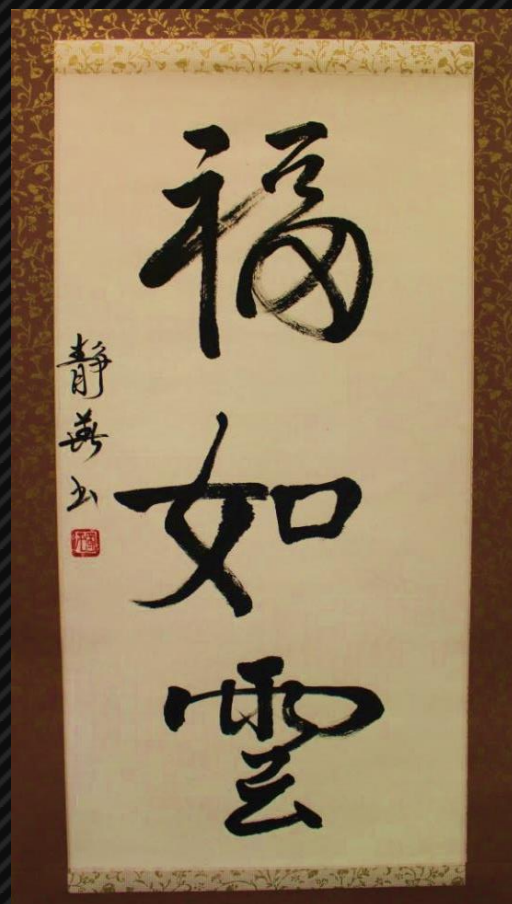 福如雲
靜英书